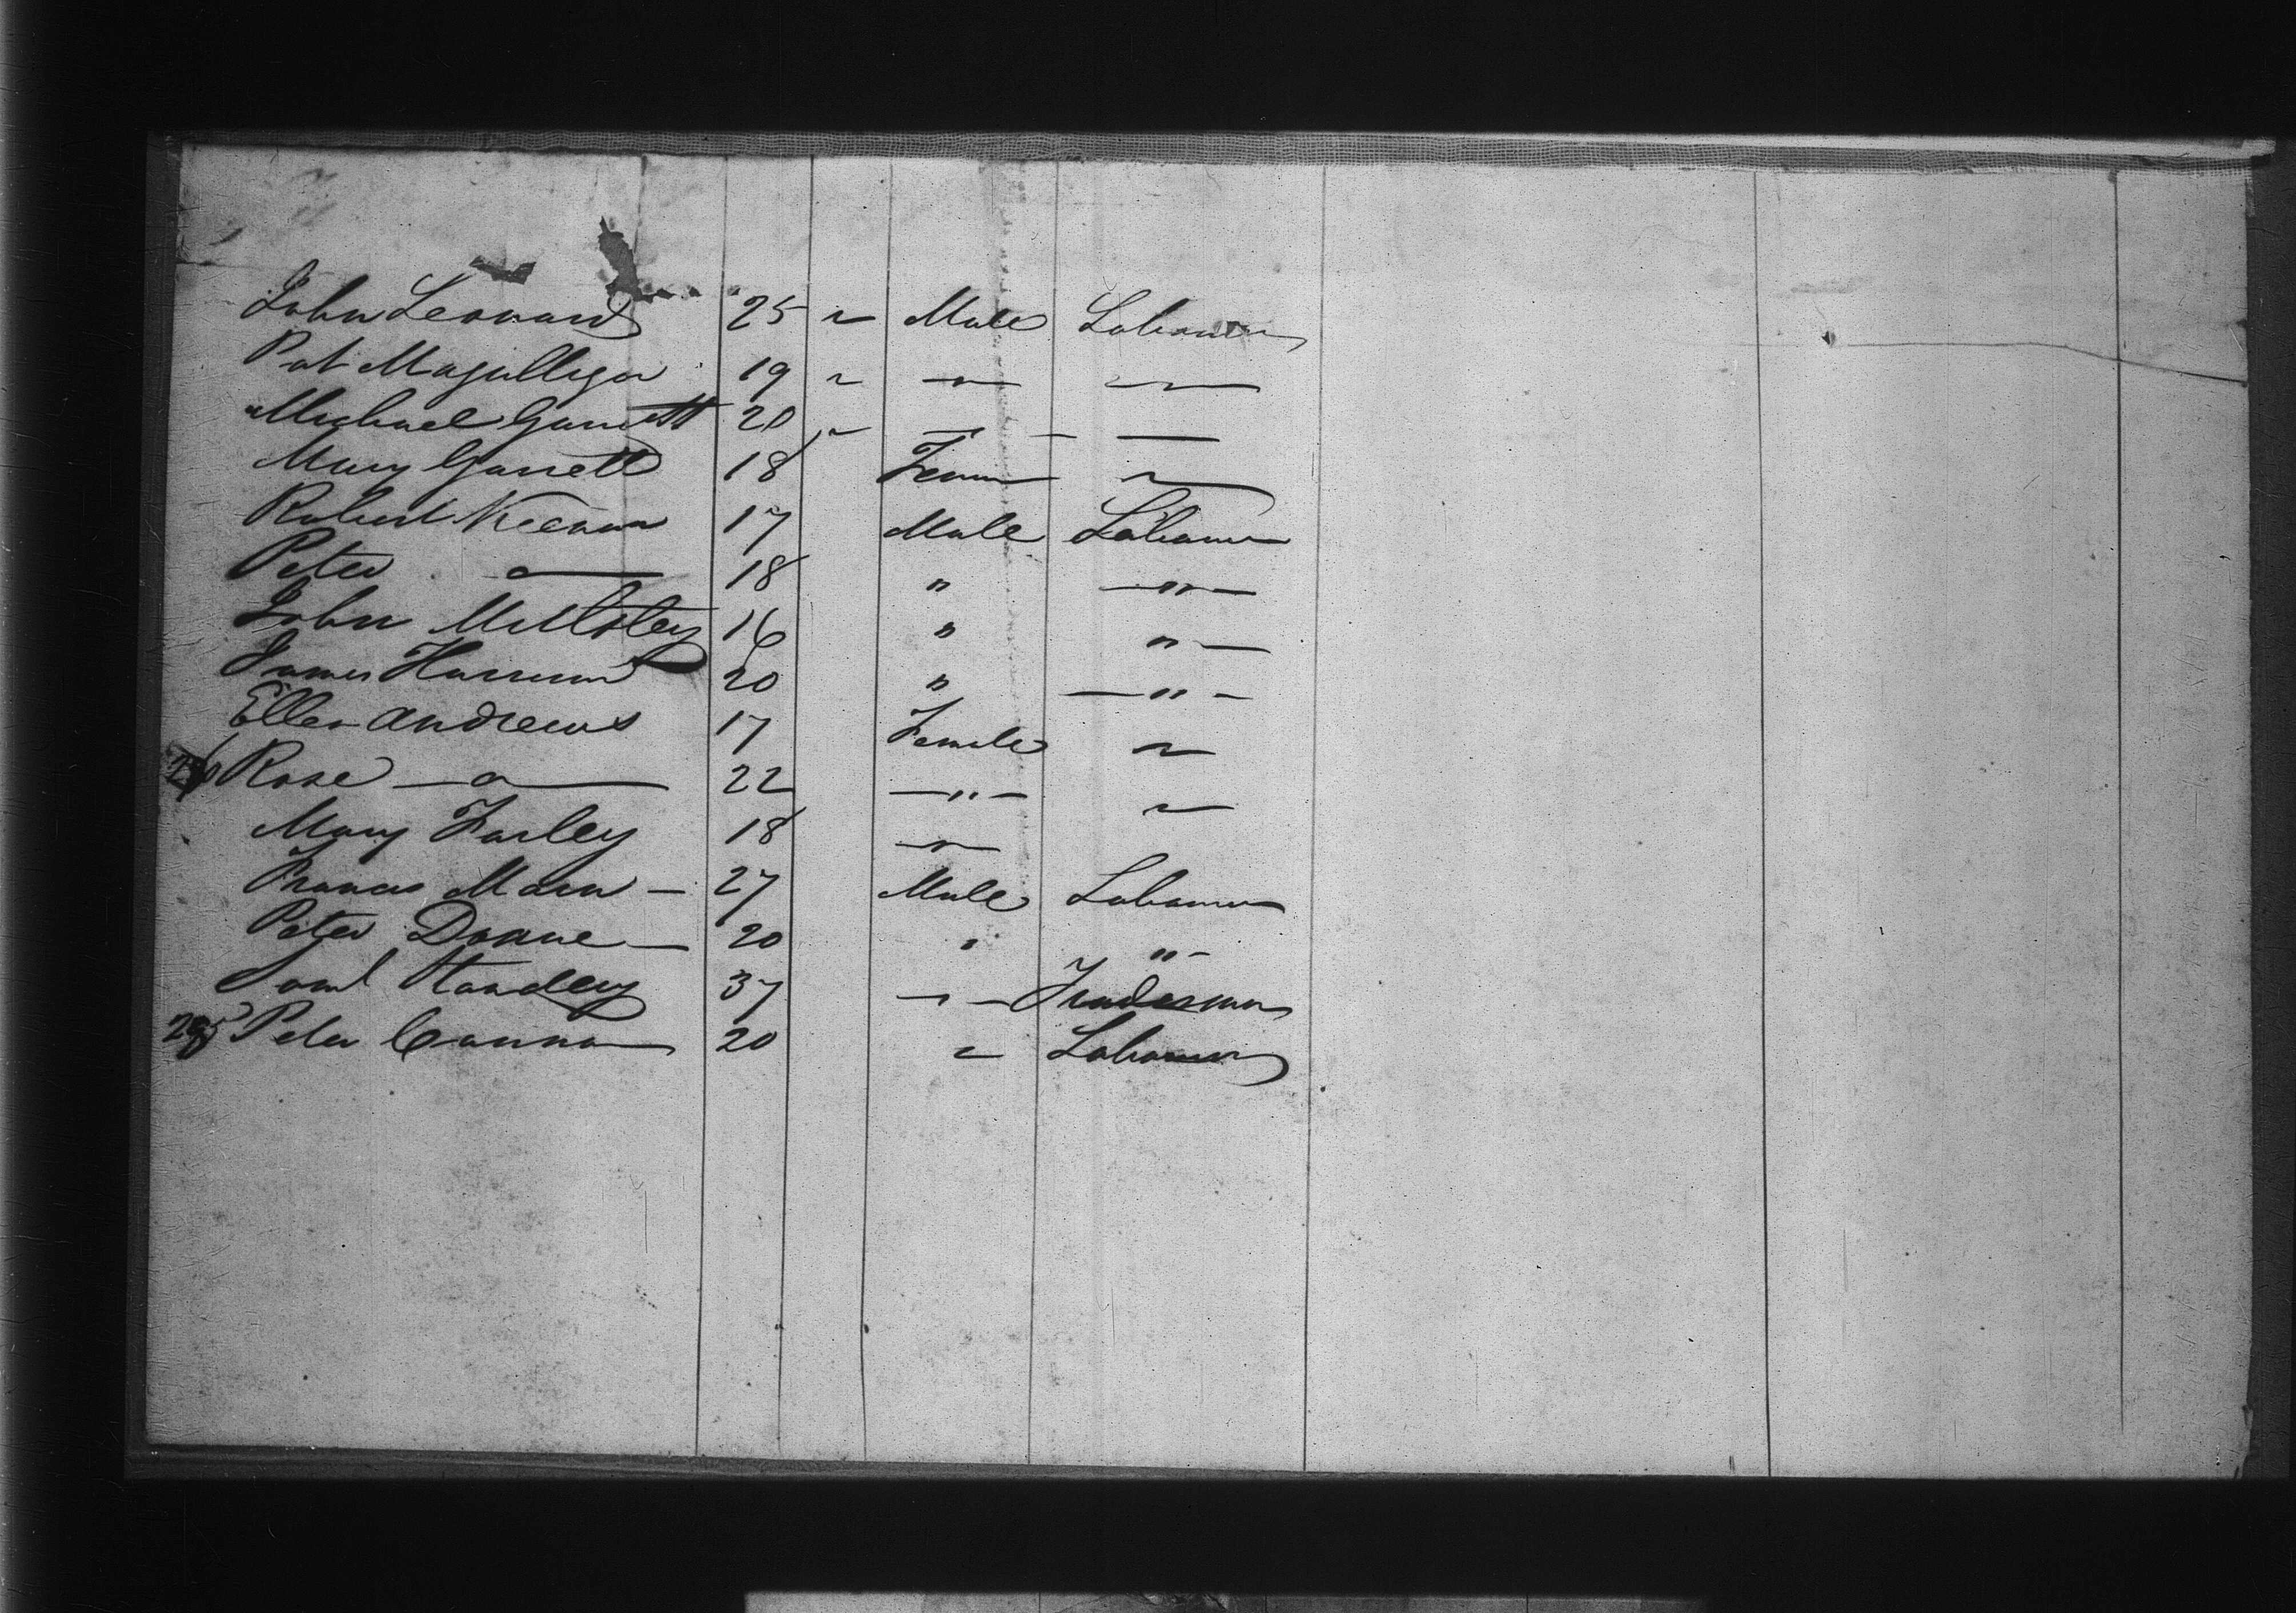 John Leonard 25 " Male Labourer
Pat Magilligan 19 " " "
Michael Garrett 20 " " "
Mary Garrett 18 Fem "
Robert Keenan 17 Male Labourer
Peter " 18 " "
John 16 " "
James 20 " "
Ellen Andrews 17 Female "
Rose " 22 " "
Mary Farley 18 "
Francis Marn 27 Male Labourer
Peter Doane 20 " "
Saml Handley 37 " Tradesman
295 Peter Cannon 20 " Labourer